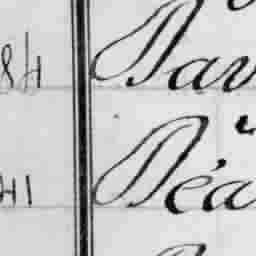 84 Pav
41 Péa